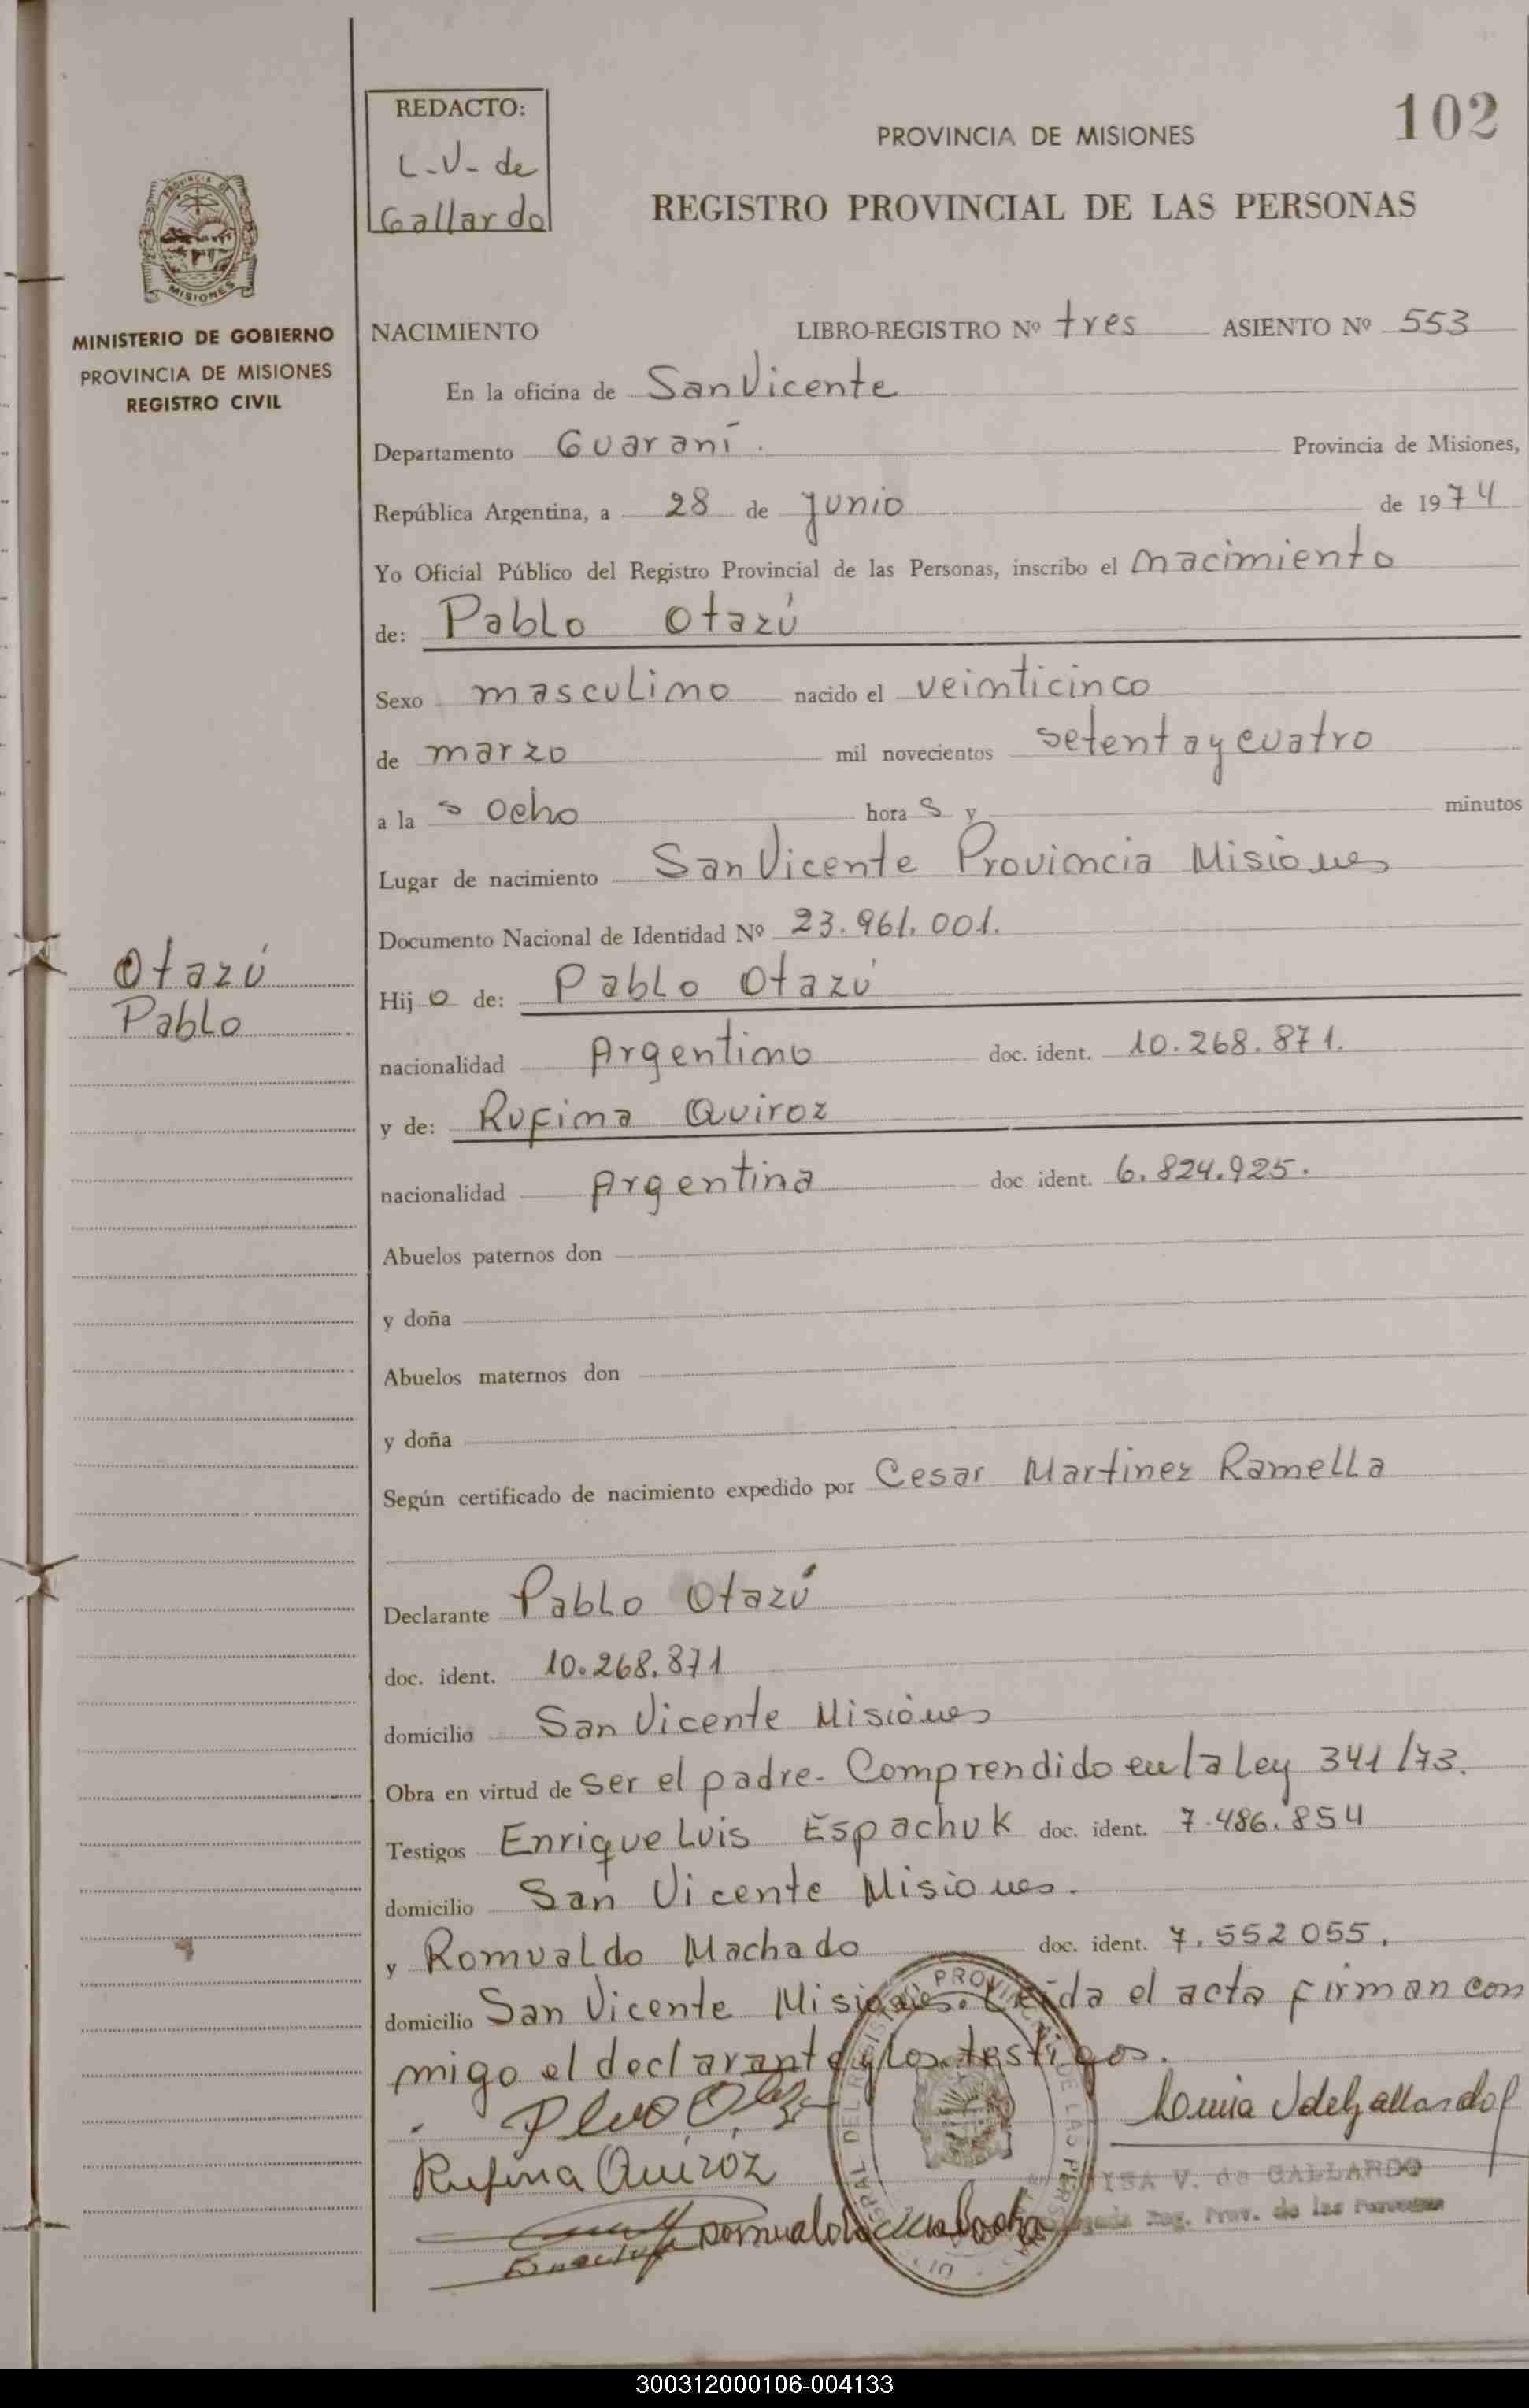 REDACTO:
L-V- de
Gallardo
PROVINCIA DE MISIONES
102
REGISTRO PROVINCIAL DE LAS PERSONAS
PROVINCIA DE
MISIONES
MINISTERIO DE GOBIERNO
PROVINCIA DE MISIONES
REGISTRO CIVIL
NACIMIENTO LIBRO-REGISTRO Nº tres ASIENTO Nº 553
En la oficina de San Vicente
Departamento Guaraní. Provincia de Misiones,
República Argentina, a 28 de junio de 1974
Yo Oficial Público del Registro Provincial de las Personas, inscribo el nacimiento
de: Pablo Otazú
Sexo masculino nacido el veinticinco
de marzo mil novecientos setenta y cuatro
a la s ocho hora s y minutos
Lugar de nacimiento San Vicente Provincia Misiones
Documento Nacional de Identidad Nº 23.961.001.
Otazú
Pablo
Hij o de: Pablo Otazú
nacionalidad Argentino doc. ident. 10.268.871.
y de: Rufina Quiroz
nacionalidad Argentina doc ident. 6.824.925.
Abuelos paternos don
y doña
Abuelos maternos don
y doña
Según certificado de nacimiento expedido por Cesar Martinez Ramella
Declarante Pablo Otazú
doc. ident. 10.268.871
domicilio San Vicente Misiones
Obra en virtud de ser el padre. Comprendido en la Ley 341/73.
Testigos Enrique Luis Espachuk doc. ident. 7.486.854
domicilio San Vicente Misiones.
y Romualdo Machado doc. ident. 7.552055.
domicilio San Vicente Misiones. Leída el acta firman con
migo el declarante y los testigos.
Rufina Quiroz
V. de GALLARDO
Reg. Prov. de las Personas
300312000106-004133